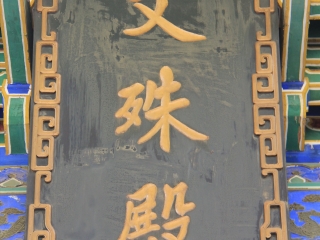 文殊殿